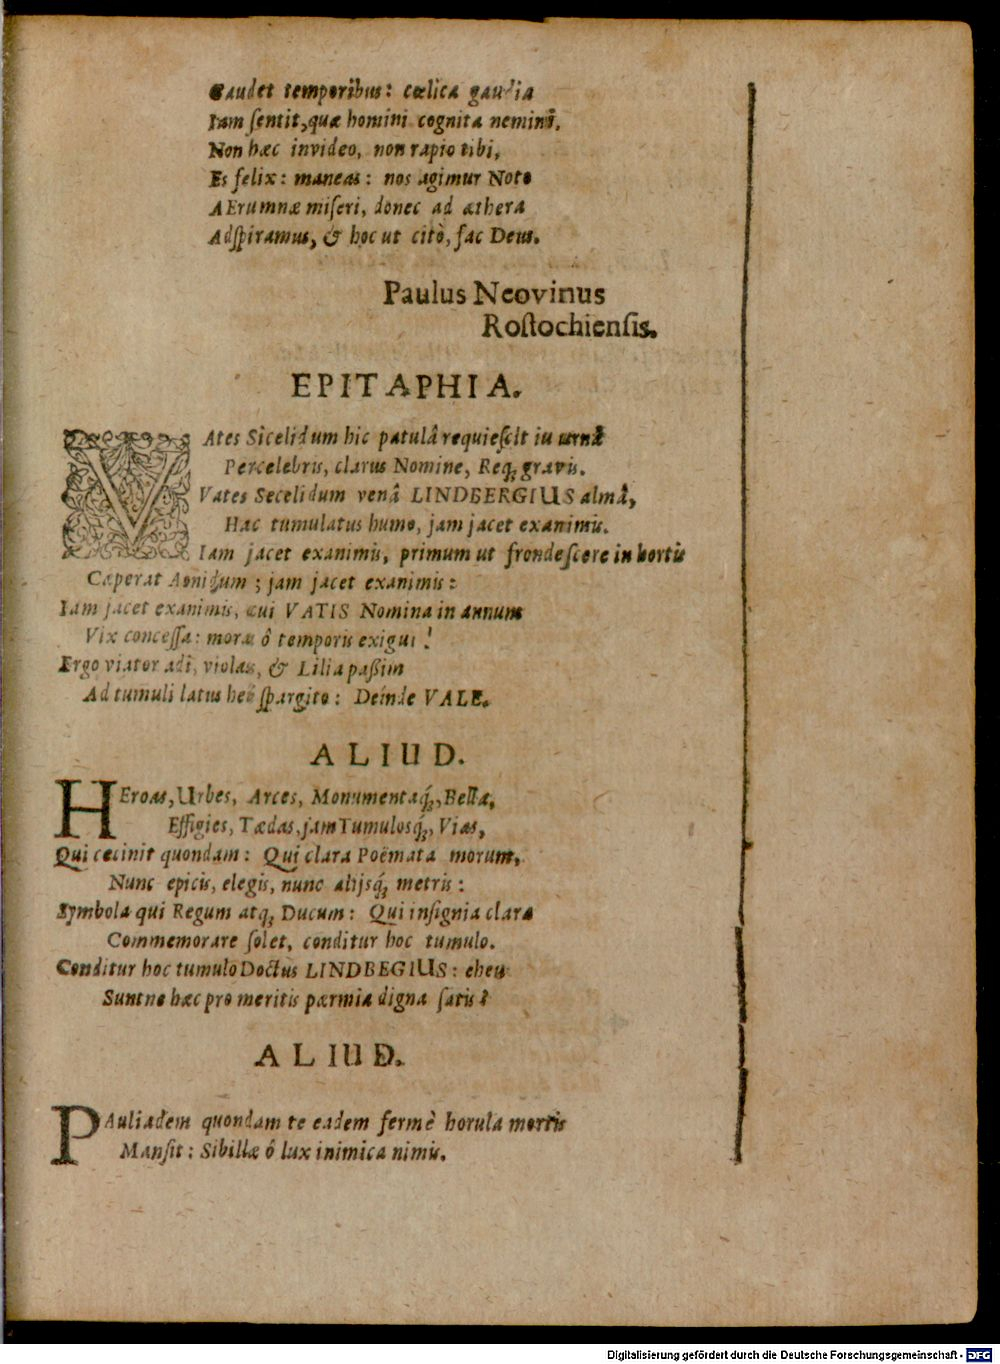 Gaudet temporibus: cœlica gaudia
Iam ſentit, quæ homini cognita nemini.
Non hæc invideo, non rapio tibi,
Es felix: maneas: nos agimur Noto
AErumnæ miſeri, donec ad æthera
Adſpiramus, & hoc ut citò, fac Deus.
Paulus Neovinus
Roſtochienſis.
EPITAPHIA.
VAtes Sicelidum hic patulâ requieſcit iu urnâ
Percelebris, clarus Nomine, Req; gravis.
Vates Secelidum venâ LINDBERGIUS almâ,
Hac tumulatus humo, jam jacet exanimis.
Iam jacet exanimis, primum ut frondeſcere in hortis
Cæperat Aonidum; jam jacet exanimis:
Iam jacet exanimis, cui VATIS Nomina in annum
Vix conceſſa: moræ ô temporis exigui!
Ergo viator adi, violas, & Lilia paßim
Ad tumuli latus heic ſpargito: Deinde VALE.
ALIUD.
HEroas, Urbes, Arces, Monumentaq́;, Bella,
Effigies, Tædas, jam Tumulosq́;, Vias,
Qui cecinit quondam: Qui clara Poëmata morum,
Nunc epicis, elegis, nunc alijsq́; metris:
Symbola qui Regum atq; Ducum: Qui inſignia clara
Commemorare ſolet, conditur hoc tumulo.
Conditur hoc tumulo Doctus LINDBEGIUS: eheu
Suntne hæc pro meritis pærmia digna ſatis?
ALIUD.
PAuliadem quondam te eadem fermè horula mortis
Manſit: Sibillæ ô lux inimica nimis.
Digitalisierung gefördert durch die Deutsche Forschungsgemeinschaft - DFG